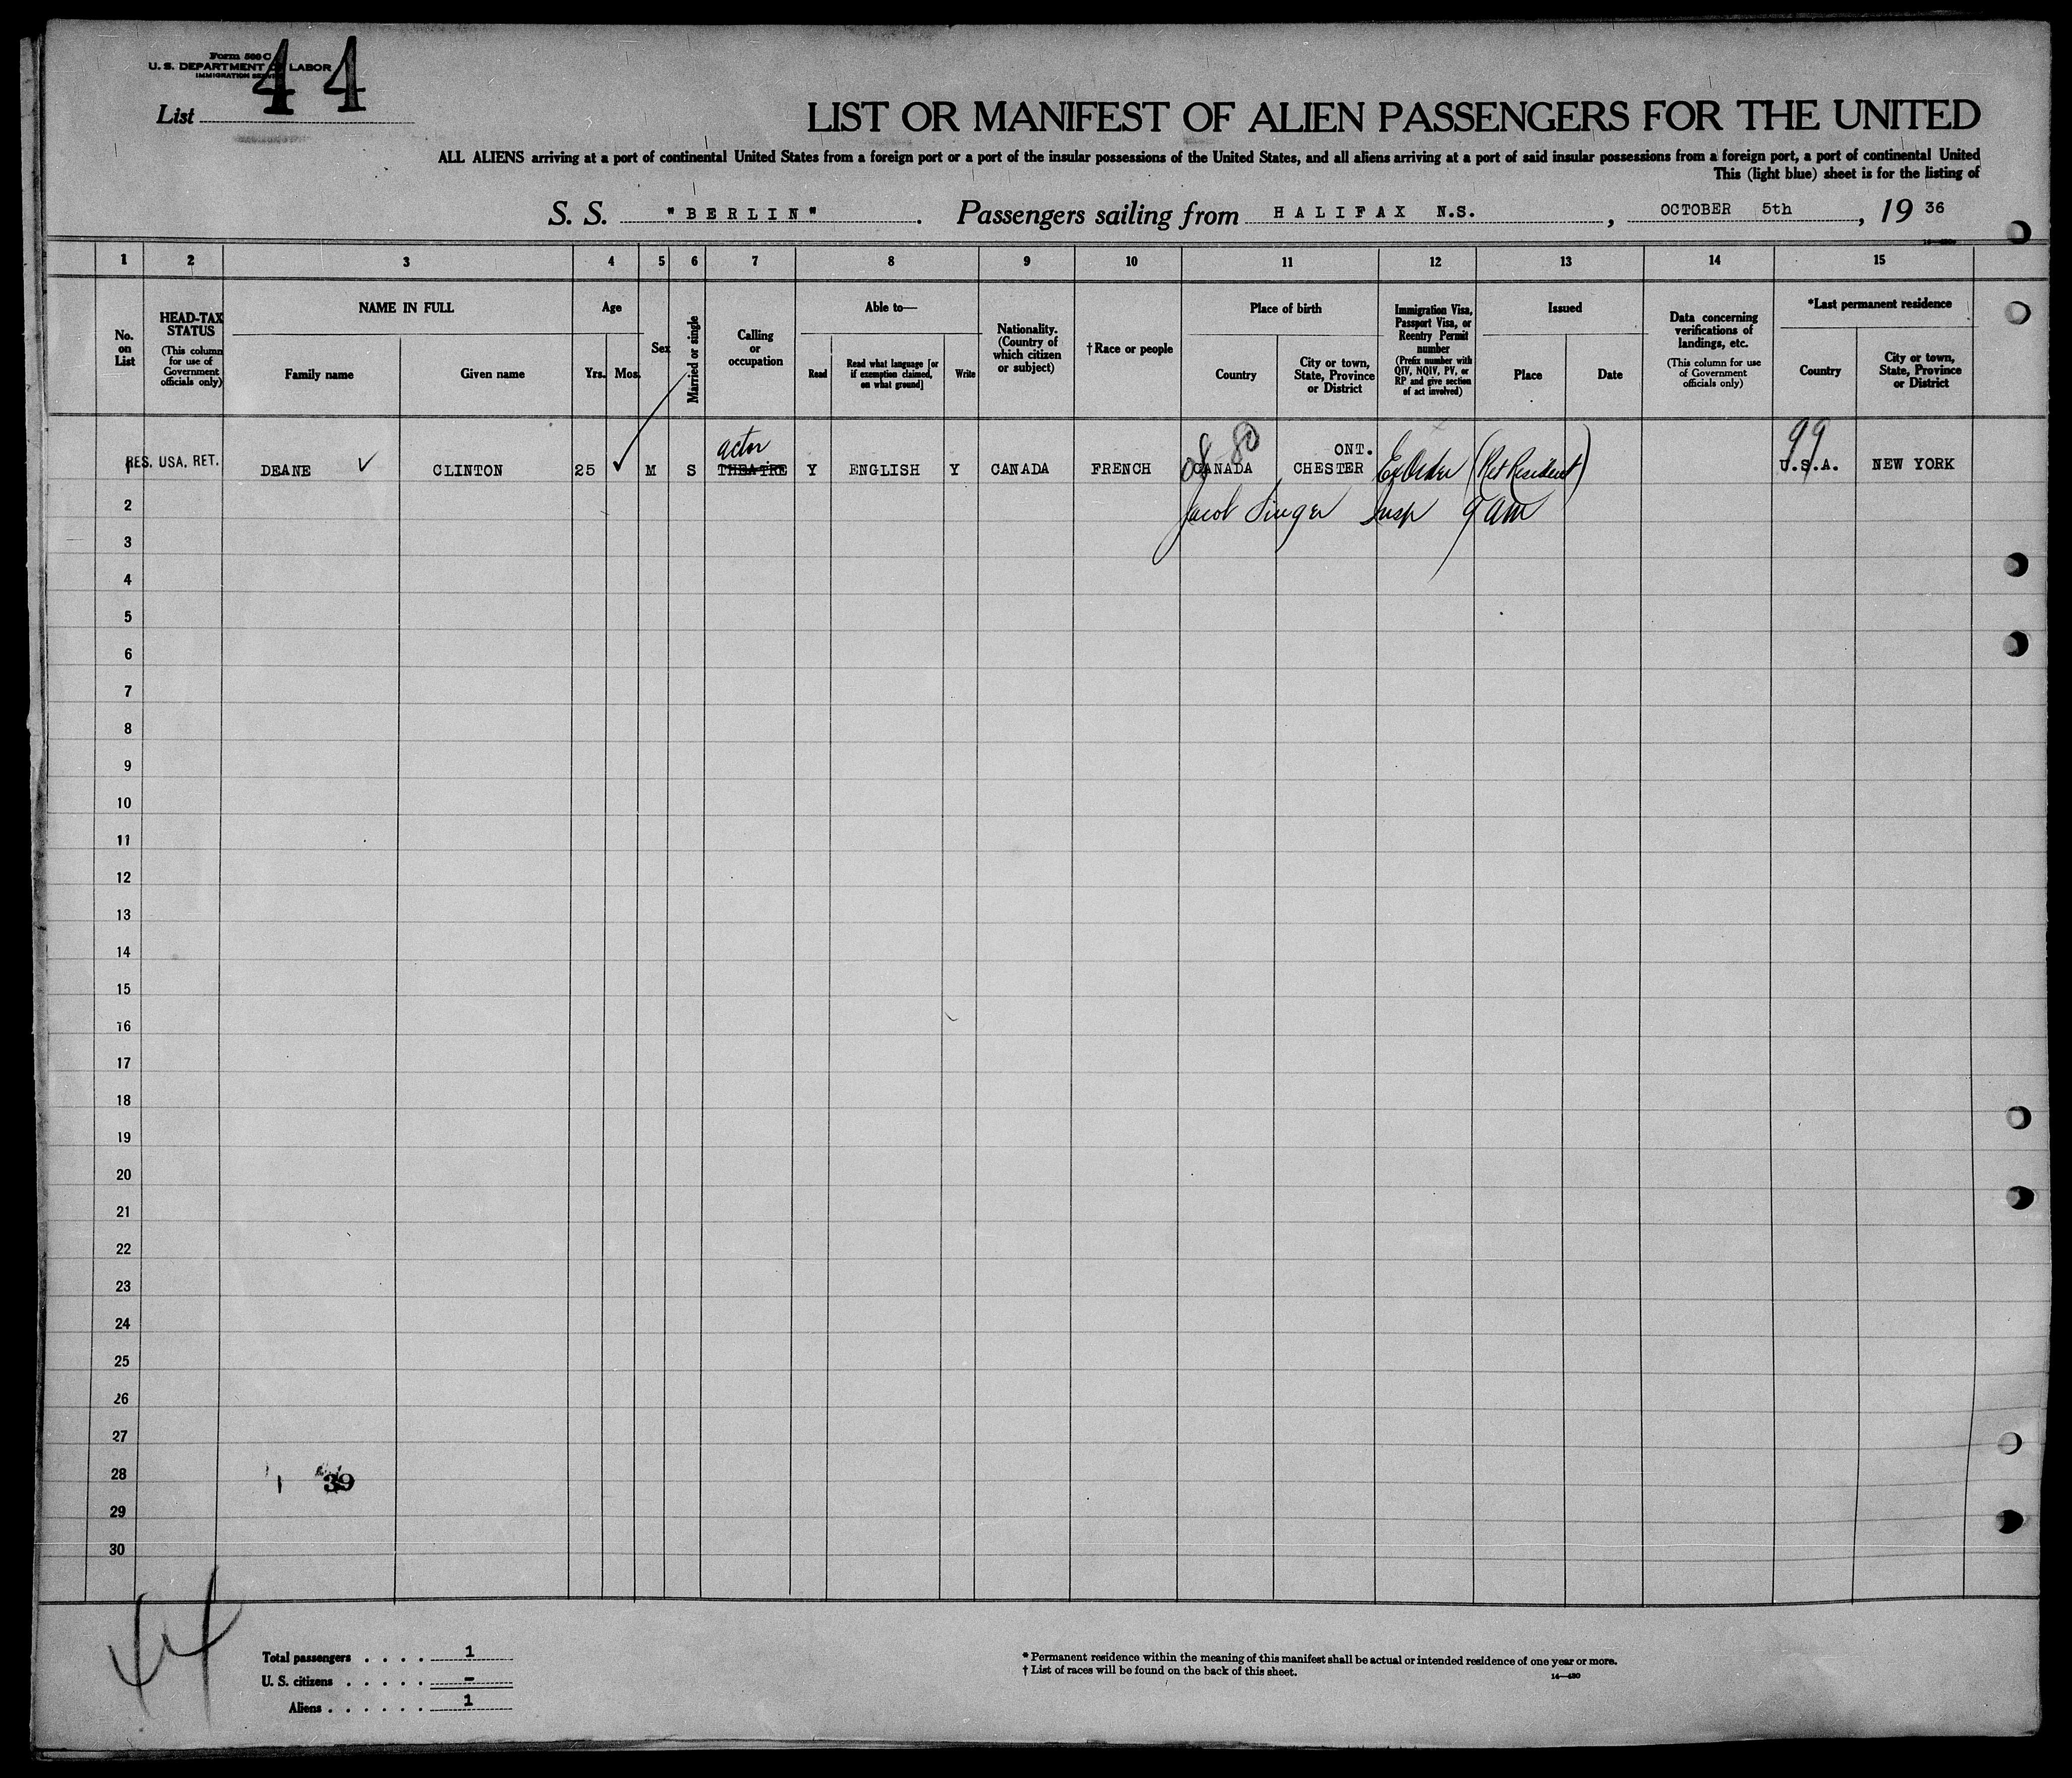 Form 500 C
U. S. DEPARTMENT OF LABOR
IMMIGRATION SERVICE
List 44
LIST OR MANIFEST OF ALIEN PASSENGERS FOR THE UNITED
ALL ALIENS arriving at a port of continental United States from a foreign port or a port of the insular possessions of the United States, and all aliens arriving at a port of said insular possessions from a foreign port, a port of continental United
This (light blue) sheet is for the listing of
S. S. "BERLIN". Passengers sailing from HALIFAX N.S., OCTOBER 5th, 19 36
1 2 3 4 5 6 7 8 9 10 11 12 13 14 15
No. on List
HEAD-TAX STATUS (This column for use of Government officials only)
NAME IN FULL
Family name Given name
Age
Yrs. Mos.
Sex
Married or single
Calling or occupation
Able to—
Read Read what language [or if exemption claimed, on what ground] Write
Nationality. (Country of which citizen or subject)
†Race or people
Place of birth
Country City or town, State, Province or District
Immigration Visa, Passport Visa, or Reentry Permit number (Prefix number with QIV, NQIV, PV, or RP and give section of act involved)
Issued
Place Date
Data concerning verifications of landings, etc. (This column for use of Government officials only)
*Last permanent residence
Country City or town, State, Province or District
actor ONT. 99
1 RES. USA. RET. DEANE CLINTON 25 M S THEATRE Y ENGLISH Y CANADA FRENCH CANADA CHESTER Ex Order (Ret Resident) U.S.A. NEW YORK
2 Jacob Singer Insp 9 am
3
4
5
6
7
8
9
10
11
12
13
14
15
16
17
18
19
20
21
22
23
24
25
26
27
28 39
29
30
44
Total passengers . . . . 1
U. S. citizens . . . . . -
Aliens . . . . . . 1
* Permanent residence within the meaning of this manifest shall be actual or intended residence of one year or more.
† List of races will be found on the back of this sheet.
14—430